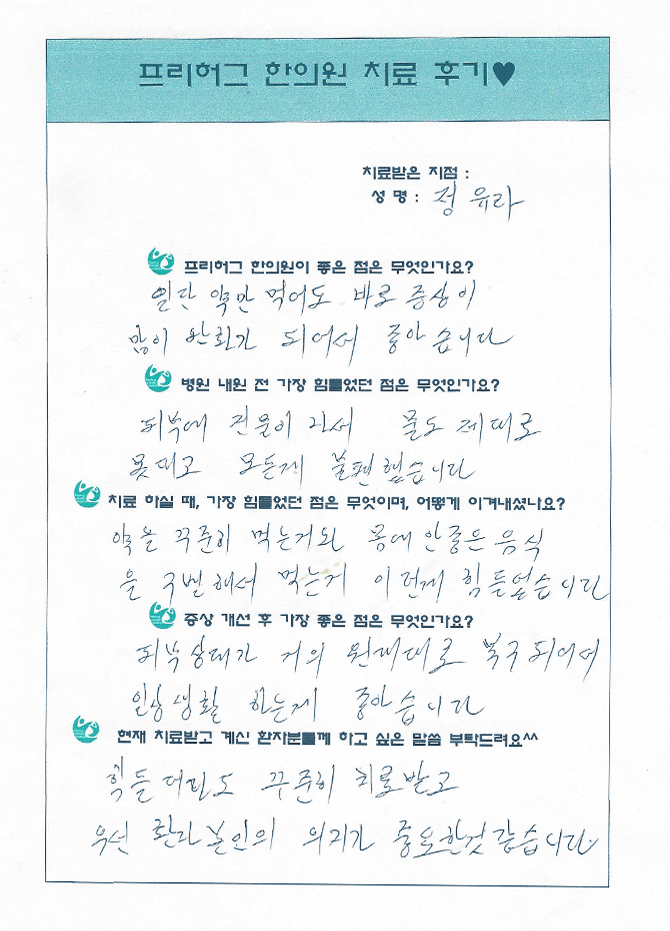 프리허그 한의원 치료 후기♥
치료받은 지점 :
성 명 : 정 유라
프리허그 한의원이 좋은 점은 무엇인가요?
일단 약만 먹어도 바로 증상이
많이 완화가 되어서 좋아 습니다
병원 내원 전 가장 힘들었던 점은 무엇인가요?
피부에 진물이 나서 물도 제대로
못대고 모든게 불편했습니다
치료 하실 때, 가장 힘들었던 점은 무엇이며, 어떻게 이겨내셨나요?
약을 꾸준히 먹는거와 몸에 안좋은 음식
을 구별해서 먹는게 이런게 힘들었습니다
증상 개선 후 가장 좋은 점은 무엇인가요?
피부상태가 거의 원래대로 복구되어서
일상생활 하는게 좋아습니다
현재 치료받고 계신 환자분들께 하고 싶은 말씀 부탁드려요^^
힘들더라도 꾸준히 치료받고
우선 환자본인의 의지가 중요한것 같습니다.